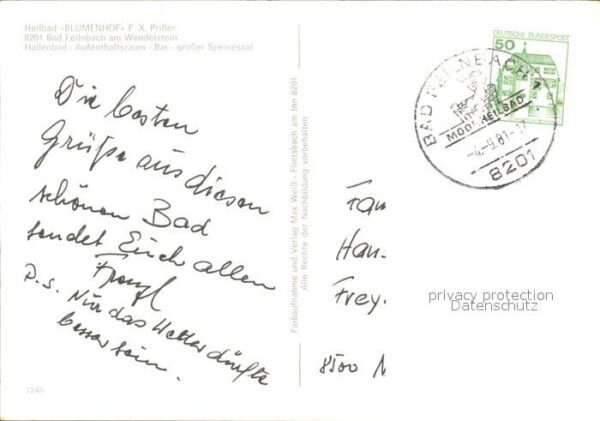 Heilbad »BLUMENHOF« F. X. Priller
8201 Bad Feilnbach am Wendelstein
Hallenbad - Aufenthaltsraum - Bar - großer Speisesaal
Die besten
Grüße aus diesen
schönen Bad
sendet Euch allen
P.s. Nur das Wetter dürfte
besser sein.
1246
Farbaufnahme und Verlag Max Weiß - Flintsbach am Inn 8201
Alle Rechte der Nachbildung vorbehalten
DEUTSCHE BUNDESPOST
50
BAD FEILNBACH 1
MOORHEILBAD
-4.-9.81-17
8201
Han-
Frey-
8500 N
privacy protection
Datenschutz